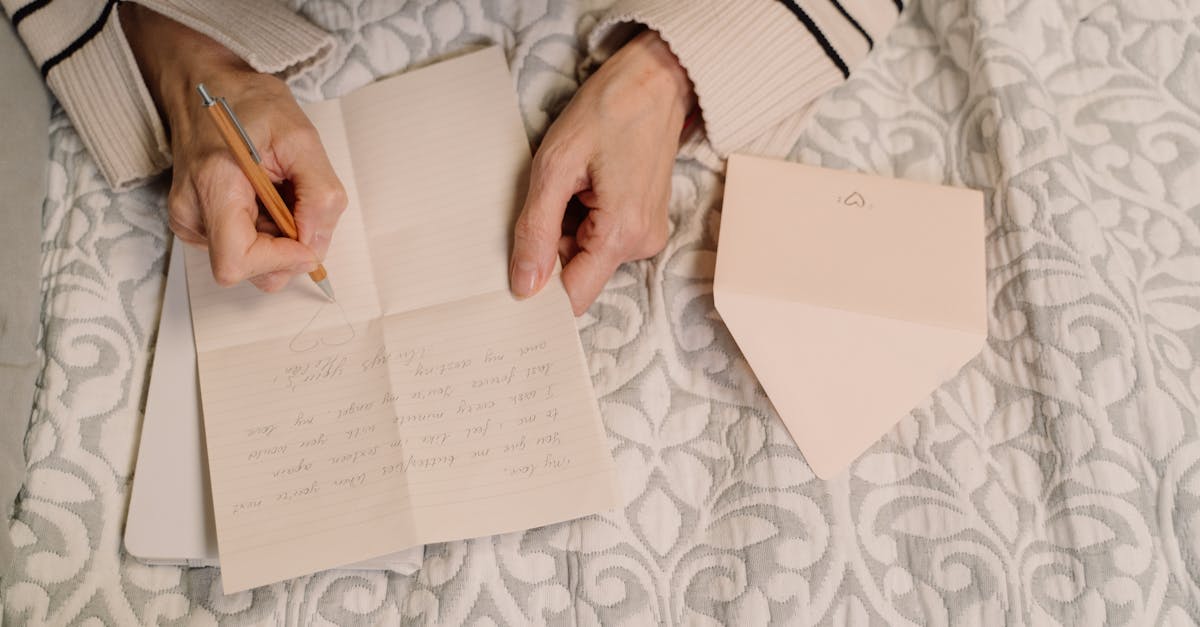 My love,
You give me butterflies when you're next
to me, i feel like i'm sixteen again
I wish every minute with you would
last forever You're my angel, my love
and my destiny Always yours